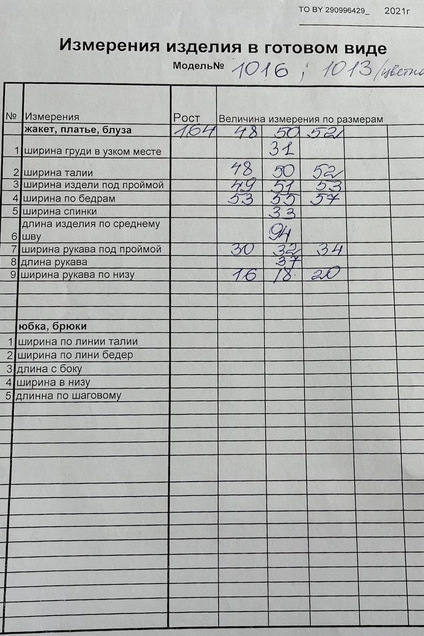 ТО BY 290996429_ 2021г
Измерения изделия в готовом виде
Модель№ 1016 ; 1013/цветн
№ Измерения Рост Величина измерения по размерам
жакет, платье, блуза 164 48 50 52
1 ширина груди в узком месте 31
2 ширина талии 48 50 52
3 ширина издели под проймой 49 51 53
4 ширина по бедрам 53 55 57
5 ширина спинки 33
длина изделия по среднему
6 шву 94
7 ширина рукава под проймой 30 32 34
8 длина рукава 37
9 ширина рукава по низу 16 18 20
юбка, брюки
1 ширина по линии талии
2 ширина по лини бедер
3 длина с боку
4 ширина в низу
5 длинна по шаговому